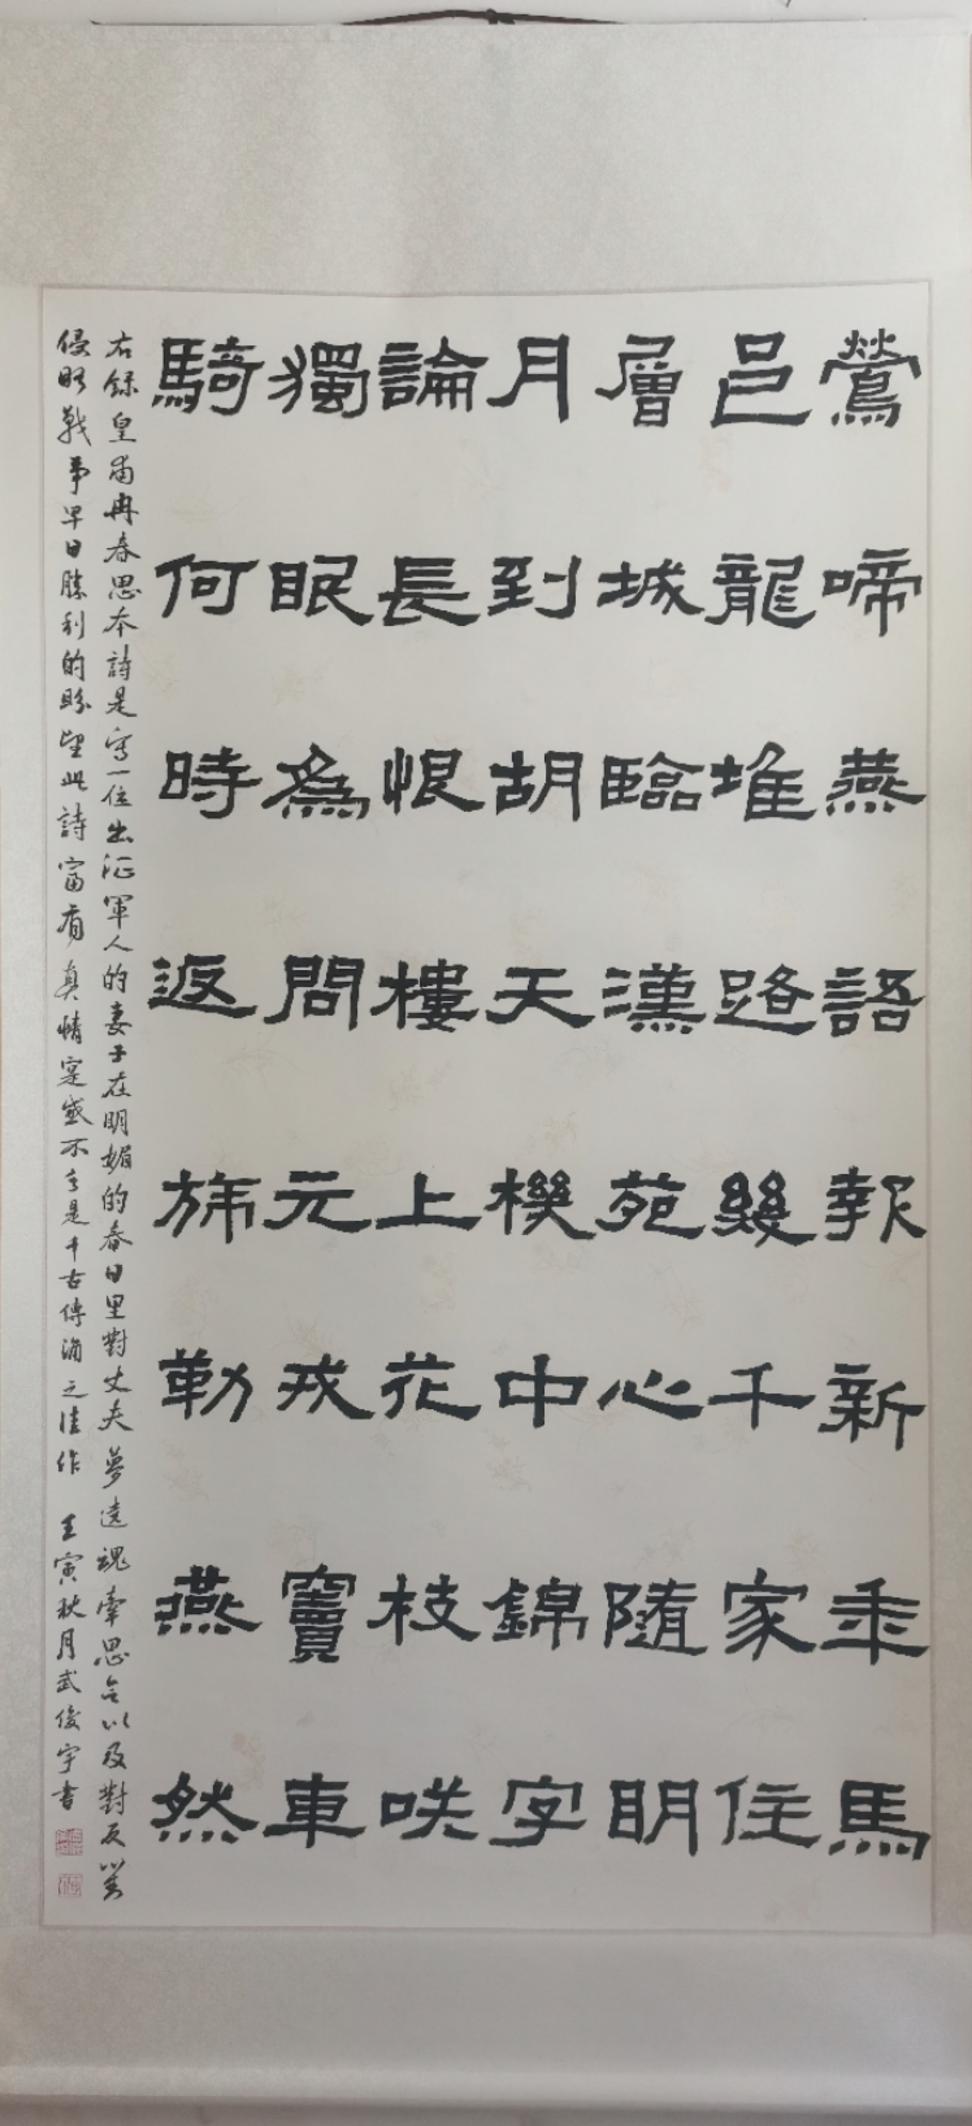 鶯啼燕語報新秊馬
邑龍堆路幾千家住
層城臨漢苑心隨明
月到胡天機中錦字
論長恨樓上花枝咲
獨眠為問元戎竇車
騎何時返旆勒燕然
右錄皇甫冉春思本詩是寫一位出征軍人的妻子在明媚的春日里對丈夫夢遶魂牽思念以及對反對
侵略戰爭早日勝利的盼望此詩富有真情寔感不是千古傳誦之佳作 壬寅秋月武俊宇書